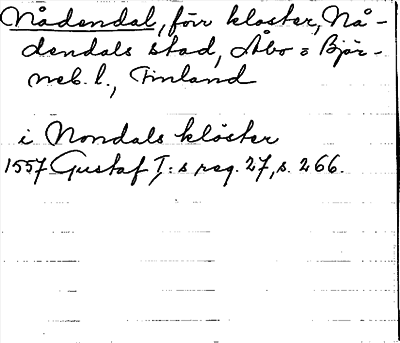 Nådendal, förr kloster, Nå-
dendals stad, Åbo o Björ-
neb. l., Finland
i Nondals klöster
1557 Gustaf I:s reg. 27, s. 266.